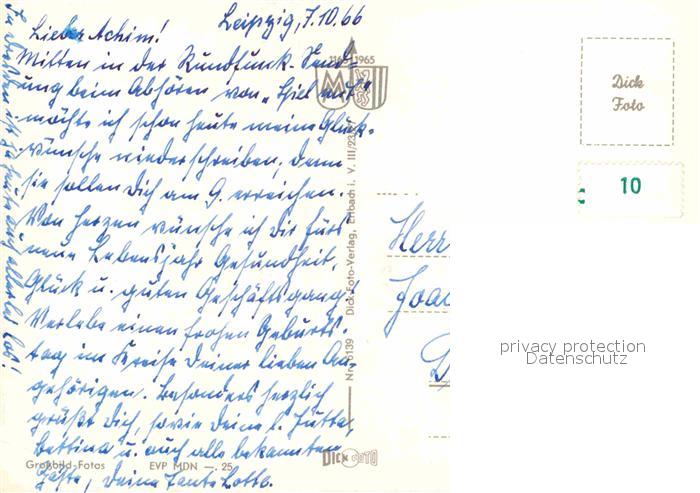 Leipzig, 7.10.66
Lieber Achim!
Mitten in der Rundfunk-Send-
ung beim Abhören von „Spiel mit"
möchte ich schon heute meine Glück-
wünsche niederschreiben, denn
sie sollen Dich am 9. erreichen.
Von Herzen wünsche ich Dir fürs
neue Lebensjahr Gesundheit,
Glück u. guten Geschäftsgang.
Verlebe einen frohen Geburts-
tag im Kreise Deiner lieben An-
gehörigen. Besonders herzlich
grüßt Dich, sowie Deine l. Jutta,
Bettina u. auch alle bekannten
Gäste, Deine Tante Lotte.
In Dresden ist ja heute auch allerlei los!
1165 1965
Nr. 6139 Dick-Foto-Verlag, Erlbach i. V. III/23/
Großbild-Fotos EVP MDN —.25
DICK FOTO
Dick
Foto
10
Herr
Joac
D
privacy protection
Datenschutz